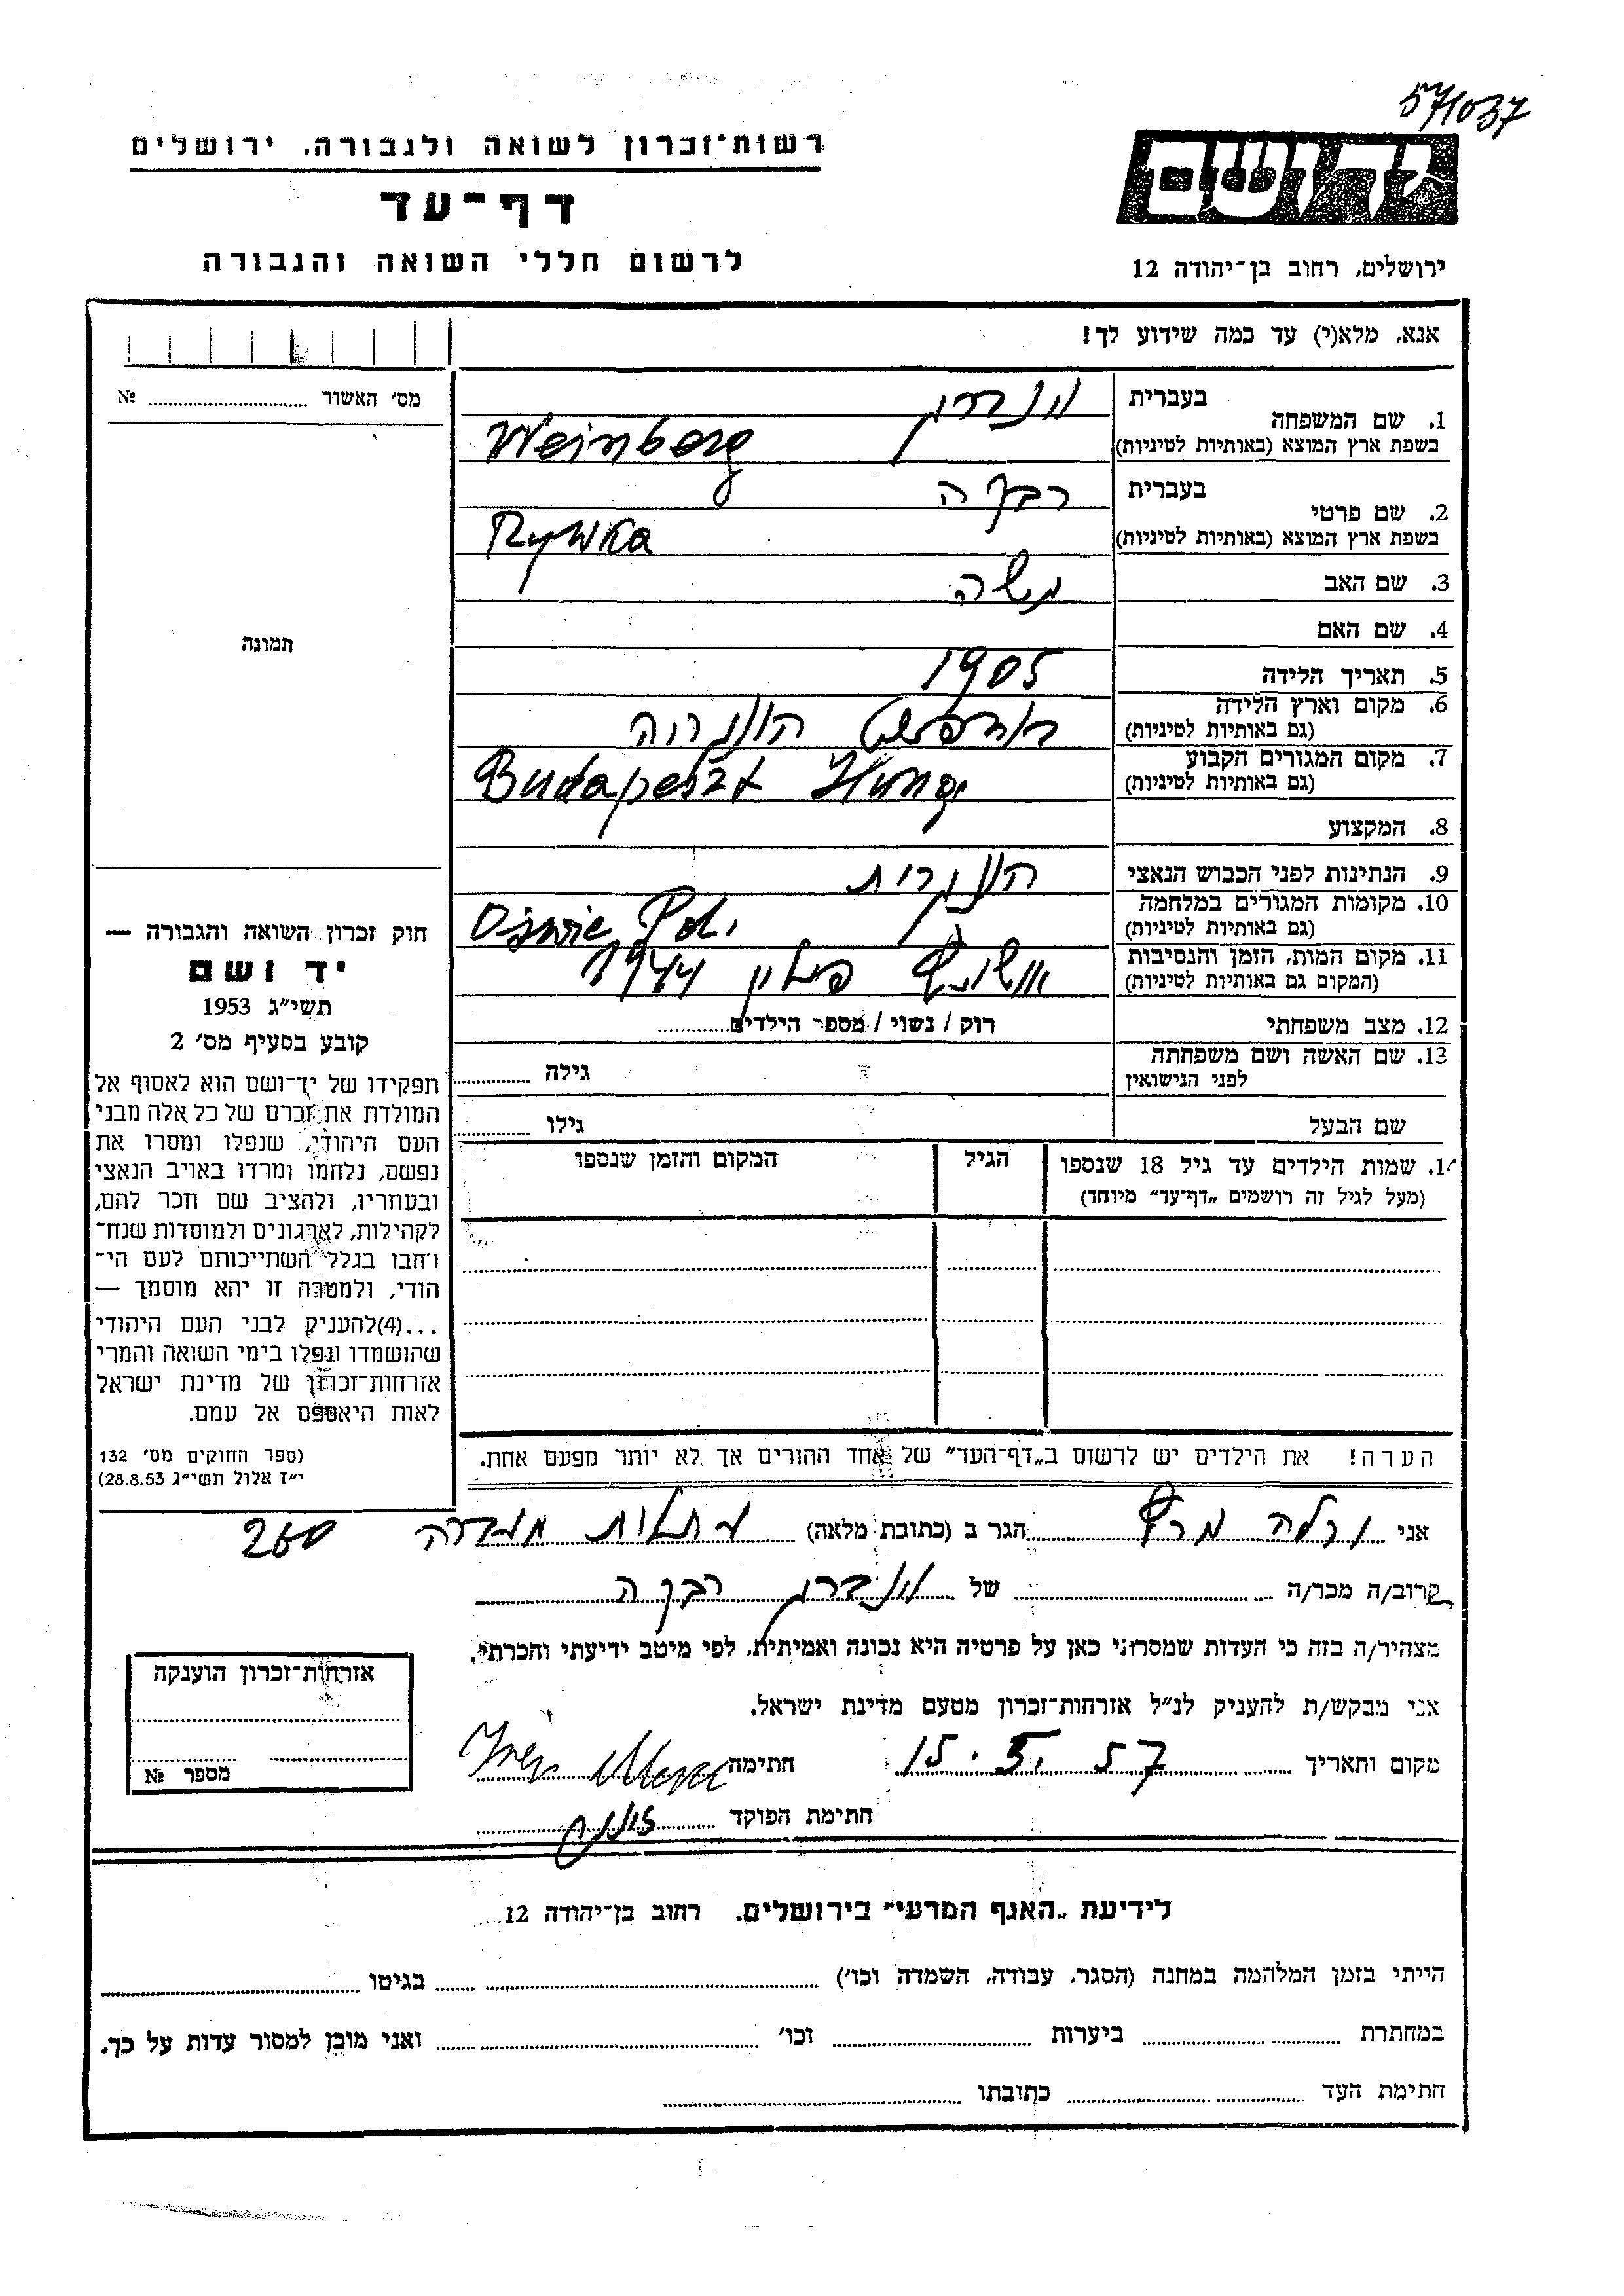 57/1037
רשות־זכרון לשואה ולגבורה. ירושלים
דף־עד
לרשום חללי השואה והגבורה
יד ושם
ירושלים, רחוב בן־יהודה 12
אנא, מלא(י) עד כמה שידוע לך!
מס׳ האשור № 
תמונה
חוק זכרון השואה והגבורה —
יד ושם
תשי״ג 1953
קובע בסעיף מס׳ 2
תפקידו של יד־ושם הוא לאסוף אל
המולדת את זכרם של כל אלה מבני
העם היהודי, שנפלו ומסרו את
נפשם, נלחמו ומרדו באויב הנאצי
ובעוזריו, ולהציב שם וזכר להם,
לקהילות, לארגונים ולמוסדות שנח־
רחבו בגלל השתייכותם לעם הי־
הודי, ולמטרה זו יהא מוסמך —
...(4)להעניק לבני העם היהודי
שהושמדו ונפלו בימי השואה והמרי
אזרחות־זכרון של מדינת ישראל
לאות היאספם אל עמם.
(ספר החוקים מס׳ 132
י״ז אלול תשי״ג 28.8.53)
בעברית
1. שם המשפחה
בשפת ארץ המוצא (באותיות לטיניות) Weinberg
בעברית רבקה
2. שם פרטי
בשפת ארץ המוצא (באותיות לטיניות) Rywka
3. שם האב משה
4. שם האם
5. תאריך הלידה 1905
6. מקום וארץ הלידה
(גם באותיות לטיניות)
7. מקום המגורים הקבוע
(גם באותיות לטיניות) Budapeszt
8. המקצוע
9. הנתינות לפני הכבוש הנאצי הונגרית
10. מקומות המגורים במלחמה
(גם באותיות לטיניות)
11. מקום המות, הזמן והנסיבות
(המקום גם באותיות לטיניות) פולין 1944
12. מצב משפחתי רוק / נשוי / מספר הילדים
13. שם האשה ושם משפחתה
לפני הנישואין גילה
שם הבעל גילו
14. שמות הילדים עד גיל 18 שנספו הגיל המקום והזמן שנספו
(מעל לגיל זה רושמים „דף־עד״ מיוחד)
הערה! את הילדים יש לרשום ב„דף־העד״ של אחד ההורים אך לא יותר מפעם אחת.
אני הגר ב (כתובת מלאה) 260
קרוב/ה מכר/ה של רבקה
מצהיר/ה בזה כי העדות שמסרתי כאן על פרטיה היא נכונה ואמיתית, לפי מיטב ידיעתי והכרתי.
אני מבקש/ת להעניק לנ״ל אזרחות־זכרון מטעם מדינת ישראל.
מקום ותאריך 15.5.57 חתימה
חתימת הפוקד
אזרחות־זכרון הוענקה
מספר №
לידיעת „האגף המדעי״ בירושלים. רחוב בן־יהודה 12
הייתי בזמן המלחמה במחנה (הסגר, עבודה, השמדה וכו׳) בגיטו
במחתרת ביערות וכו׳ ואני מוכן למסור עדות על כך.
חתימת העד כתובתו